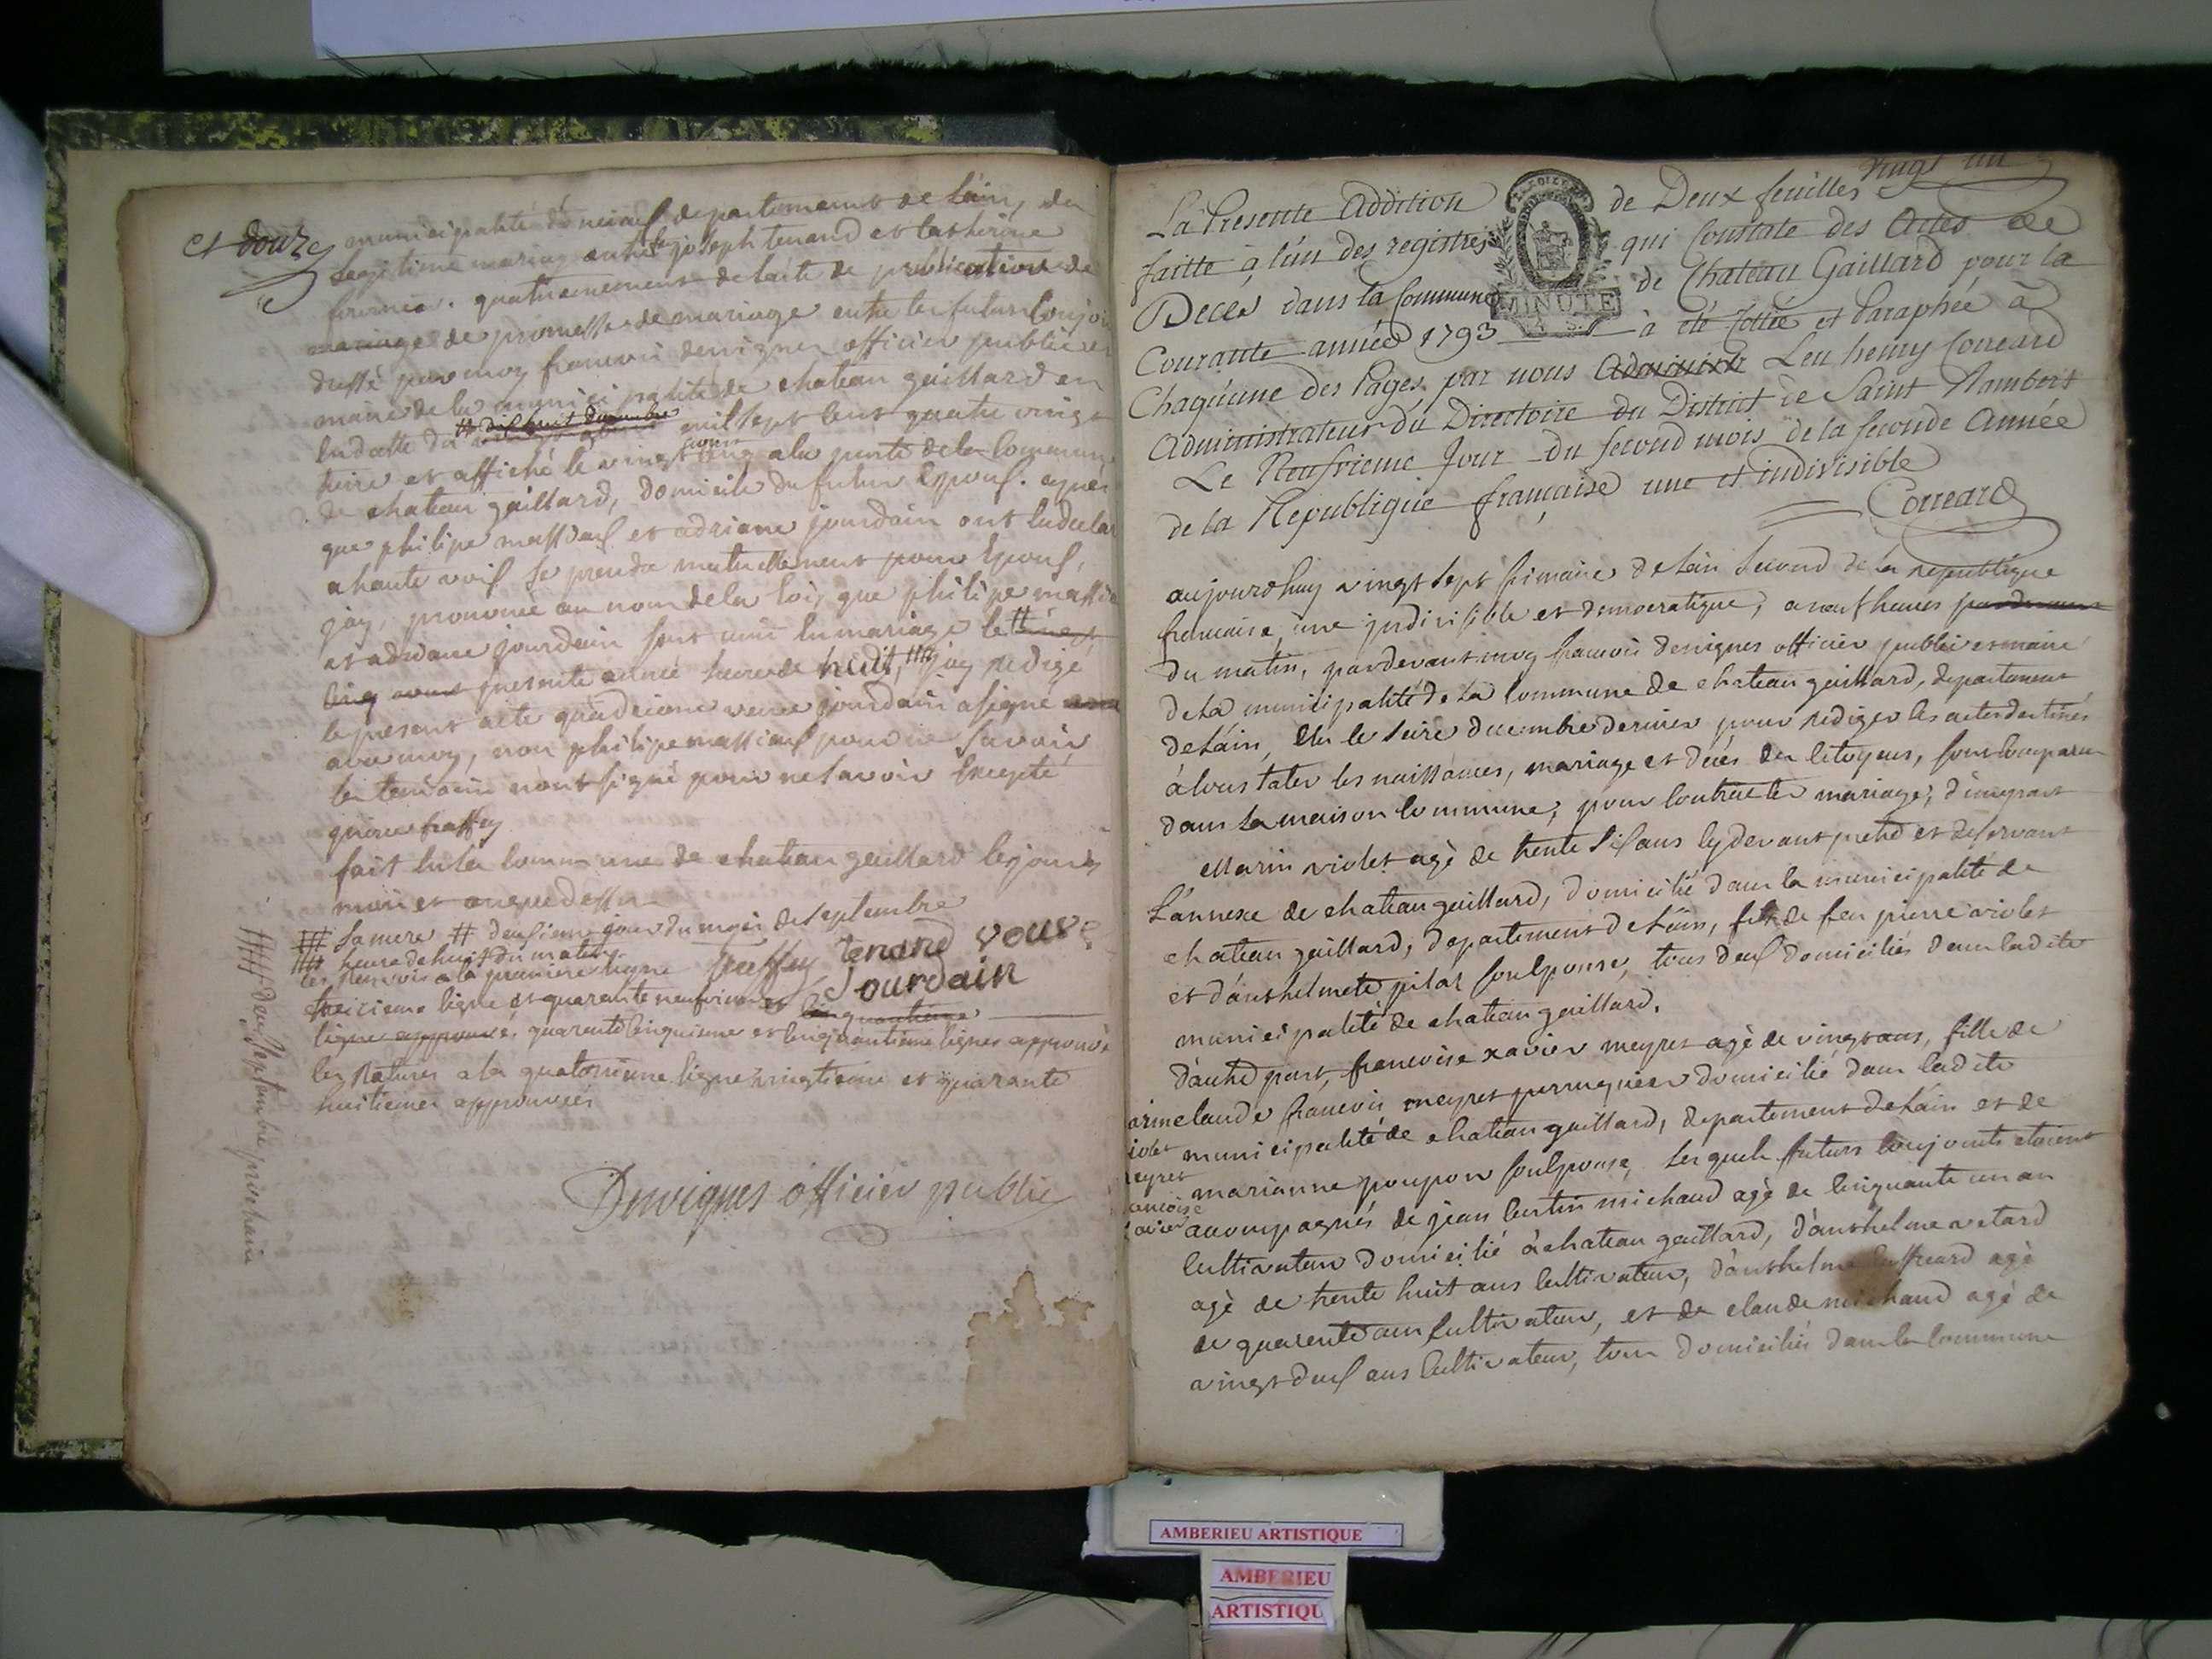 et douze
municipalité de neuuil departement de Lain, du
legitime mariag entre joseph tenand et catherine
fournier. quatriemement de lacte de publication de
mariage de promesse de mariage entre les futurs Conjoi
dressé par moy francois desvignes officier public et
maire de la municipalité de chateau gaillard en
la datte du # dix huit decembre mil sept cent quatre vingt
treize et affiché le vingt cinq a la porte de la Commune
de chateau gaillard, domicile du futur Epoux. après
que philipe massieu et adriane jourdain ont eu declar
a haute voix se prendre mutuellement pour Epoux,
jay, prononcé au nom de la loi, que philipe massie
et adriane jourdain sont unis en mariage le #
cinq presente année heure de huit, ### jay redigé
le present acte qu'adriane jourdain a signé
avec moy, non philipe massieu pour ne savoir
les temoins n'ont signé pour ne savoir Excepté
pierre
fait en la commune de chateau gaillard le jour,
mois et an que dessus
## sa mere # deusieme jour du mois de septembre
### heure de huit du matin.
les Renvois a la premiere ligne
tenand veuve
Jourdain
treizieme ligne et quarante neufvieme et cinquantieme
ligne approuvé, quarante cinquieme et cinquantieme lignes approuvé
les Ratures a la quatorzieme ligne vingtieme et quarante
huitieme approuvées
#### deux septembre prochain
Desvignes officier public
Vingt un
La Presente Addition de Deux feuilles
faitte à l'un des registres qui Constate des Actes de
Deces dans la Commune de Chateau Gaillard pour la
MINUTE
Courante année 1793 à été Cottée et Paraphée à
Chaquune des Pages par nous Administr Leu henry Correard
Administrateur du Directoire du District de Saint Rambert
Le Neufvieme Jour du second mois de la seconde Année
de la Republique française une et indivisible
Correard
aujourdhuy vingt sept frimaire de Lan second de la republique
francaise, une jndivisible et democratique, a neuf heures pardevant
du matin, pardevant moy francois desvignes officier public et maire
de la municipalité de la Commune de chateau gaillard, departement
de Lain, Elu le seize decembre dernier pour rediger les actes destinés
à Constater les naissances, mariage et décès des Citoyens, sont comparus
dans la maison Commune, pour Contracter mariage, d'une part
Marin violet agé de trente six ans cy devant pretre et deservant
L'annexe de chateau gaillard, domicilié dans la municipalité de
chateau gaillard, departement de Lain, fils de feu pierre violet
et d'anthelmete pilat son Epouse, tous deux domiciliés dans ladite
municipalité de chateau gaillard.
D'autre part, francoise xavier meyret agé de vingt ans, fille de
claude francois meyret perruquier domicilié dans ladite
municipalité de chateau gaillard, departement de Lain et de
marianne poupon son Epouse, lesquels futurs Conjoints etoient
acompagnés de jean Curtin michaud agé de Cinquante un an
Cultivateur domicilié à chateau gaillard, d'anthelme vetard
agé de trente huit ans Cultivateur, d'anthelme agé
de quarente ans Cultivateur, et de claude michaud agé de
vingt deux ans Cultivateur, tous domiciliés dans la Commune
arin
iolet
eyret
ancoise
xavier
AMBERIEU ARTISTIQUE
AMBERIEU
ARTISTIQU